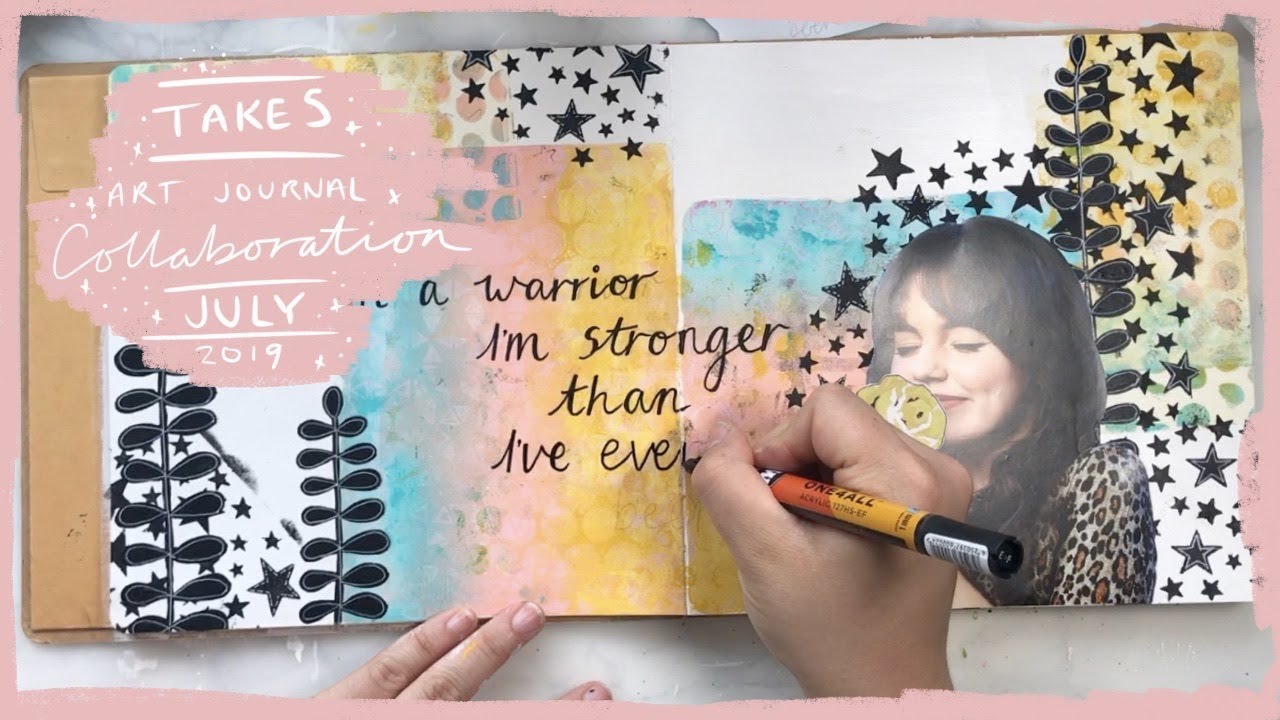 TAKE 5
ART JOURNAL
Collaboration
JULY
2019
a warrior
I'm stronger
than
I've ever
ONE4ALL
ACRYLIC 127HS-EF
1mm